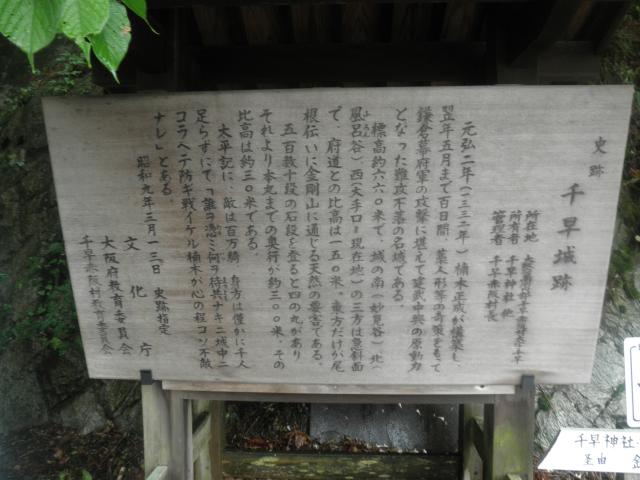 史跡 千早城跡
所在地 大阪府南河内郡千早赤阪村大字千早
所有者 千早神社他
管理者 千早赤阪村長
元弘二年(一三三二年)楠木正成が構築し、
翌年五月まで百日間、藁人形等の奇策をもって
鎌倉幕府軍の攻撃に堪えて建武中興の原動力
となった難攻不落の名城である。
標高約六六〇米で、城の南(妙見谷)北(
風呂谷)西(大手口=現在地)の三方は急斜面
で、府道との比高は一五〇米。東方だけが尾
根伝いに金剛山に通じる天然の要害である。
五百数十段の石段を登ると四の丸があり
それより本丸までの奥行が約三〇〇米、その
比高は約三〇米である。
太平記に、敵は百万騎 身方は僅かに千人
足らずにて「誰ヲ憑ミ何ヲ待共ナキニ城中ニ
コラヘテ防キ戦イケル楠木が心の程コソ不敵
ナレ」とある
昭和九年三月一三日 史跡指定
文化庁
大阪府教育委員会
千早赤阪村教育委員会
千早神社